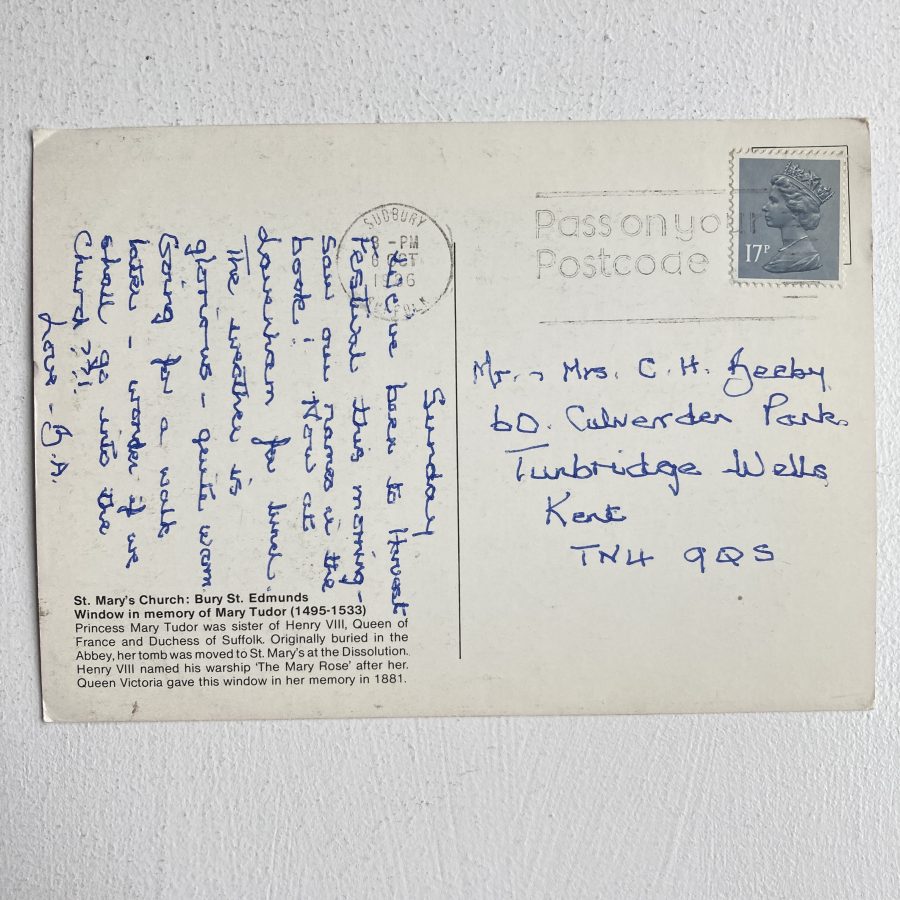 SUDBURY
-PM
OCT
SUFFOLK
Pass on your
Postcode
17P
Sunday
We've been to Harvest
Festival this morning -
Saw our names in the
book! Now at
Lavenham for lunch.
The weather is
glorious - quite warm.
Going for a walk
later - wonder if we
shall go into the
Church ?!!
Love - B.A.
Mr. & Mrs. C. H. Beeby
60. Culverden Park
Tunbridge Wells
Kent
TN4 9QS
St. Mary's Church: Bury St. Edmunds
Window in memory of Mary Tudor (1495-1533)
Princess Mary Tudor was sister of Henry VIII, Queen of
France and Duchess of Suffolk. Originally buried in the
Abbey, her tomb was moved to St. Mary's at the Dissolution.
Henry VIII named his warship 'The Mary Rose' after her.
Queen Victoria gave this window in her memory in 1881.